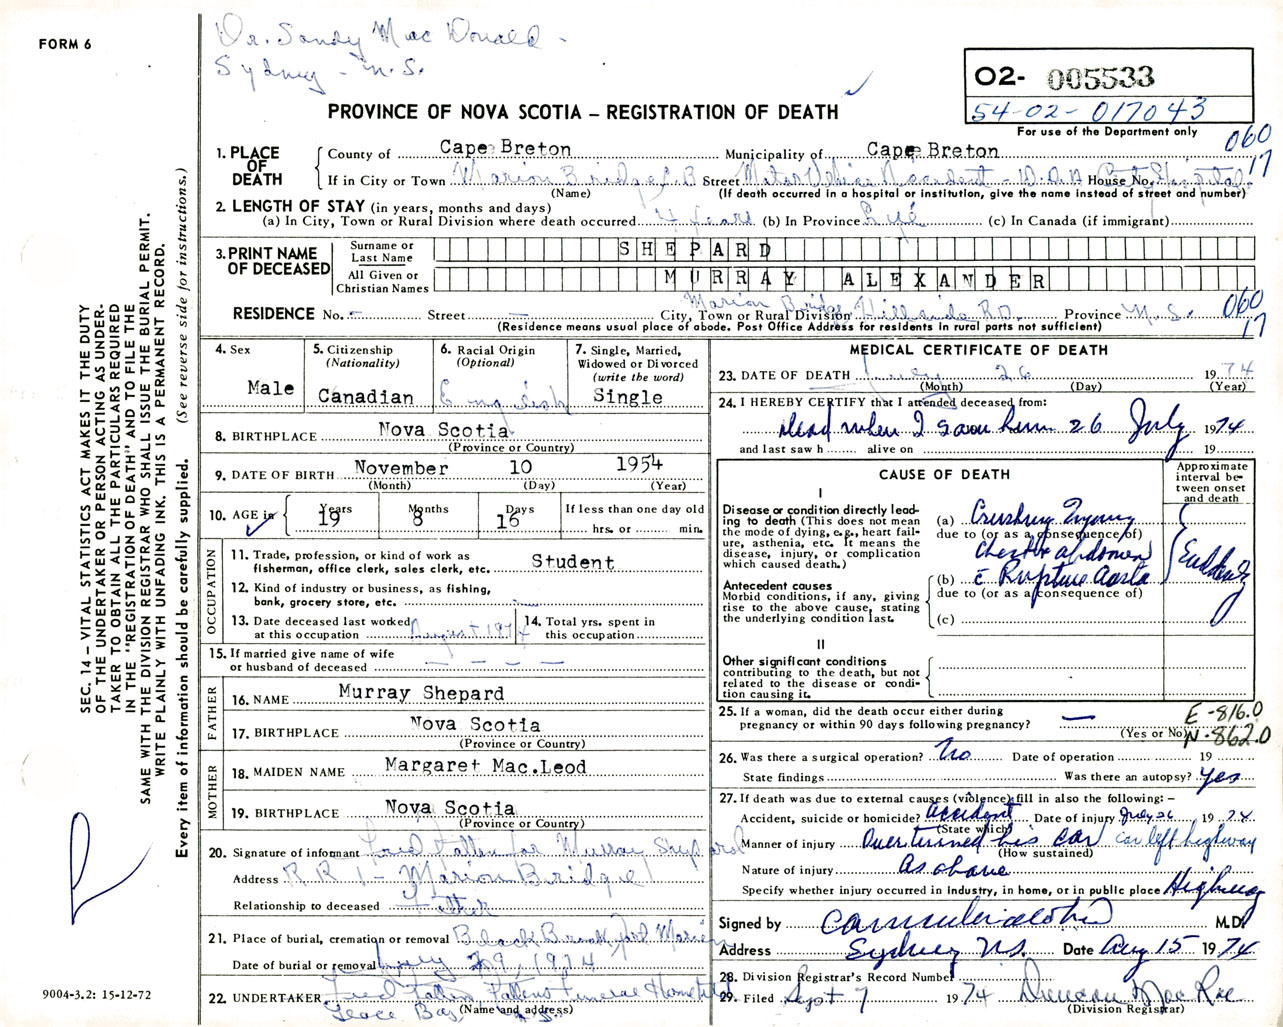 FORM 6
Dr. Sandy MacDonald -
Sydney - N.S.
O2- 005533
54-02-017043
For use of the Department only
PROVINCE OF NOVA SCOTIA – REGISTRATION OF DEATH
060
17
1. PLACE OF DEATH
County of Cape Breton Municipality of Cape Breton
If in City or Town Marion Bridge C.B Street Motor Vehicle Accident - D.O.A House No. Hospital
(Name) (If death occurred in a hospital or institution, give the name instead of street and number)
2. LENGTH OF STAY (in years, months and days)
(a) In City, Town or Rural Division where death occurred 4 years (b) In Province Life (c) In Canada (if immigrant)
3. PRINT NAME OF DECEASED
Surname or Last Name SHEPARD
All Given or Christian Names MURRAY ALEXANDER
RESIDENCE No. - Street - City, Town or Rural Division Marion Bridge Hillside RD. Province N.S.
060
17
(Residence means usual place of abode. Post Office Address for residents in rural parts not sufficient)
4. Sex
Male
5. Citizenship
(Nationality)
Canadian
6. Racial Origin
(Optional)
English
7. Single, Married,
Widowed or Divorced
(write the word)
Single
8. BIRTHPLACE Nova Scotia
(Province or Country)
9. DATE OF BIRTH November 10 1954
(Month) (Day) (Year)
10. AGE in
Years 19
Months 8
Days 16
If less than one day old
hrs. or min.
OCCUPATION
11. Trade, profession, or kind of work as
fisherman, office clerk, sales clerk, etc. Student
12. Kind of industry or business, as fishing,
bank, grocery store, etc. -
13. Date deceased last worked
at this occupation August 1974
14. Total yrs. spent in
this occupation
15. If married give name of wife
or husband of deceased - - - -
FATHER
16. NAME Murray Shepard
17. BIRTHPLACE Nova Scotia
(Province or Country)
MOTHER
18. MAIDEN NAME Margaret Mac.Leod
19. BIRTHPLACE Nova Scotia
(Province or Country)
20. Signature of informant Fred Fallen for Murray Shepard
Address R R 1 - Marion Bridge
Relationship to deceased Father
21. Place of burial, cremation or removal Black Brook Marion
Date of burial or removal July 29, 1974
22. UNDERTAKER Fred Fallen Fallens Funeral Home
Glace Bay, N.S.
(Name and address)
MEDICAL CERTIFICATE OF DEATH
23. DATE OF DEATH July 26 1974
(Month) (Day) (Year)
24. I HEREBY CERTIFY that I attended deceased from:
Dead when I saw him 26 July 1974
and last saw h alive on 19
CAUSE OF DEATH
Approximate
interval be-
tween onset
and death
I
Disease or condition directly lead-
ing to death (This does not mean
the mode of dying, e.g., heart fail-
ure, asthenia, etc. It means the
disease, injury, or complication
which caused death.)
(a) Crushing Injury
due to (or as a consequence of)
Chest & abdomen
Antecedent causes
Morbid conditions, if any, giving
rise to the above cause, stating
the underlying condition last.
(b) c̄ Rupture Aorta
due to (or as a consequence of)
(c)
Suddenly
II
Other significant conditions
contributing to the death, but not
related to the disease or condi-
tion causing it.
25. If a woman, did the death occur either during
pregnancy or within 90 days following pregnancy? —
(Yes or No)
E-816.0
N-862.0
26. Was there a surgical operation? No Date of operation 19
State findings Was there an autopsy? Yes
27. If death was due to external causes (violence) fill in also the following: –
Accident, suicide or homicide? accident Date of injury July 26 1974
(State which)
Manner of injury Overturned his car car left highway
(How sustained)
Nature of injury As above
Specify whether injury occurred in industry, in home, or in public place Highway
Signed by M.D.
Address Sydney N.S. Date Aug 15 1974
28. Division Registrar's Record Number
29. Filed Sept 7 1974 Duncan MacRae
(Division Registrar)
SEC. 14 – VITAL STATISTICS ACT MAKES IT THE DUTY
OF THE UNDERTAKER OR PERSON ACTING AS UNDER-
TAKER TO OBTAIN ALL THE PARTICULARS REQUIRED
IN THE "REGISTRATION OF DEATH" AND TO FILE THE
SAME WITH THE DIVISION REGISTRAR WHO SHALL ISSUE THE BURIAL PERMIT.
WRITE PLAINLY WITH UNFADING INK. THIS IS A PERMANENT RECORD.
Every item of information should be carefully supplied. (See reverse side for instructions.)
9004-3.2: 15-12-72